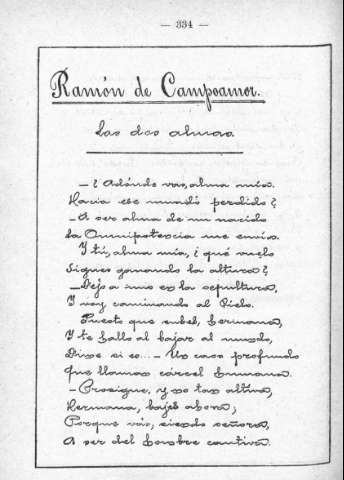 — 334 —
Ramón de Campoamor.
Las dos almas.
—¿Adónde vas, alma mía.
Hacia ese mundo perdido?
—A ser alma de un nacido
La Omnipotencia me envía.
Y tú, alma mía, ¿qué vuelo
Sigues ganando la altura?
—Dejo a uno en la sepultura,
Y voy caminando al Cielo.
Puesto que subes, hermana,
Y te hallo al bajar al mundo,
Dime si es...— Un caso profundo
Que llaman cárcel humana.
—Prosigue, y no tan altiva,
Hermana, bajes ahora;
Porque vas, siendo señora,
A ser del hombre cautiva.